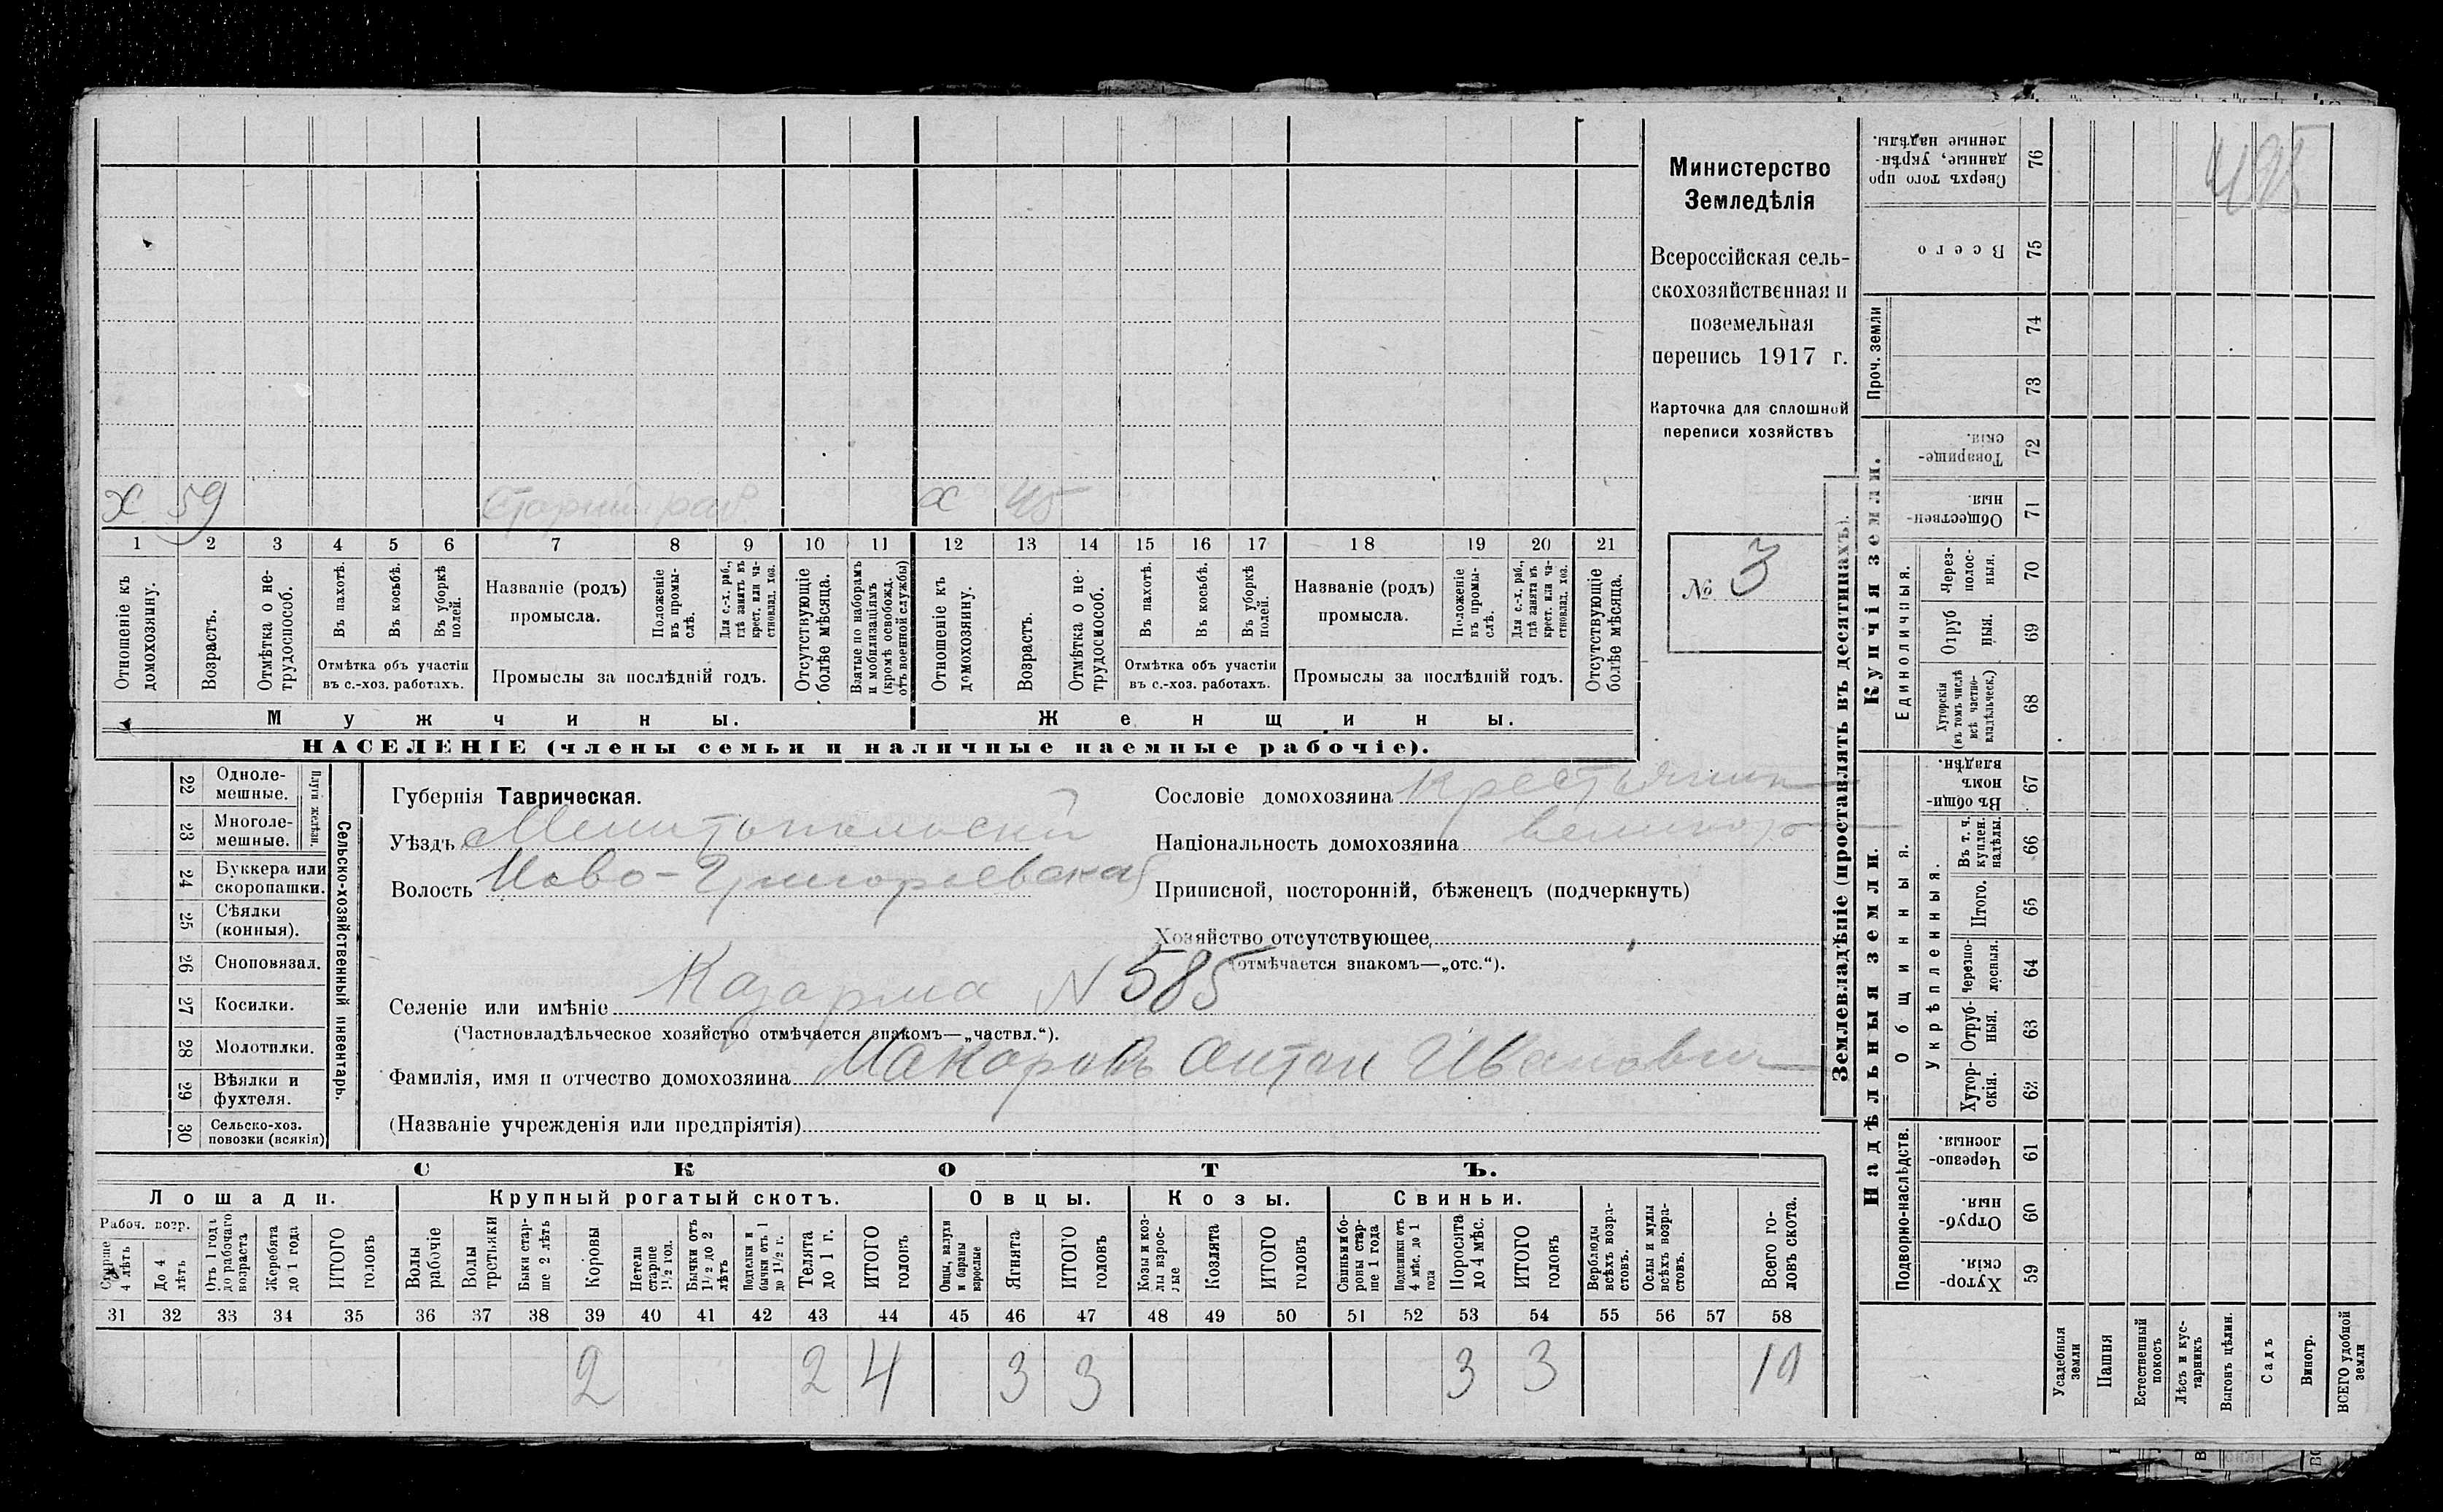 495
Министерство
Земледѣлія
Всероссійская сель-
скохозяйственная и
поземельная
перепись 1917 г.
Карточка для сплошной
переписи хозяйствъ
№ 3
х 59 Старший раб х 45
1 2 3 4 5 6 7 8 9 10 11 12 13 14 15 16 17 18 19 20 21
Отношеніе къ домохозяину.
Возрастъ.
Отмѣтка о не-трудоспособ.
Въ пахотѣ.
Въ косьбѣ.
Въ уборкѣ полей.
Отмѣтка объ участіи
въ с.-хоз. работахъ.
Названіе (родъ)
промысла.
Положеніе въ промы-слѣ.
Для с.-х. раб., гдѣ занятъ въ крест. или ча-стновлад. хоз.
Промыслы за послѣдній годъ.
Отсутствующіе болѣе мѣсяца.
Взятые по наборамъ и мобилизаціямъ (кромѣ освобожд. отъ военной службы)
Отношеніе къ домохозяину.
Возрастъ.
Отмѣтка о не-трудоспособ.
Въ пахотѣ.
Въ косьбѣ.
Въ уборкѣ полей.
Отмѣтка объ участіи
въ с.-хоз. работахъ.
Названіе (родъ)
промысла.
Положеніе въ промы-слѣ.
Для с.-х. раб., гдѣ занята въ крест. или ча-стновлад. хоз.
Промыслы за послѣдній годъ.
Отсутствующіе болѣе мѣсяца.
Мужчины. Женщины.
НАСЕЛЕНІЕ (члены семьи и наличные наемные рабочіе).
22 Одноле-мешные.
23 Многоле-мешные.
Плуги желѣзн.
24 Буккера или скоропашки.
25 Сѣялки (конныя).
26 Сноповязал.
27 Косилки.
28 Молотилки.
29 Вѣялки и фухтеля.
30 Сельско-хоз. повозки (всякія)
Сельско-хозяйственный инвентарь.
Губернія Таврическая.
Уѣздъ Мелитопольскій
Волость Ново-Григорьевская
Сословіе домохозяина крестьянин
Національность домохозяина великор
Приписной, посторонній, бѣженецъ (подчеркнуть)
Хозяйство отсутствующее
(отмѣчается знакомъ—„отс.“).
Селеніе или имѣніе Казарма N 585
(Частновладѣльческое хозяйство отмѣчается знакомъ—„частвл.“).
Фамилія, имя и отчество домохозяина Макаровъ Антон Иванович
(Названіе учрежденія или предпріятія)
СКОТЪ.
Лошади. Крупный рогатый скотъ. Овцы. Козы. Свиньи.
Рабоч. возр.
Старше 4 лѣтъ
До 4 лѣтъ
Отъ 1 года до рабочаго возраста
Жеребята до 1 года
ИТОГО головъ
Волы рабочіе
Волы третьяки
Быки стар-ше 2 лѣтъ
Коровы
Нетели старше 1½ год.
Бычки отъ 1½ до 2 лѣтъ
Подтелки и бычки отъ 1 до 1½ г.
Телята до 1 г.
ИТОГО головъ
Овцы, валухи и бараны взрослые
Ягнята
ИТОГО головъ
Козы и коз-лы взрос-лые
Козлята
ИТОГО головъ
Свиньи и бо-ровы стар-ше 1 года
Подсвинки отъ 4 мѣс. до 1 года
Поросята до 4 мѣс.
ИТОГО головъ
Верблюды всѣхъ возра-стовъ.
Ослы и мулы всѣхъ возра-стовъ.
Всего го-ловъ скота.
31 32 33 34 35 36 37 38 39 40 41 42 43 44 45 46 47 48 49 50 51 52 53 54 55 56 57 58
2 2 4 3 3 3 3 10
Землевладѣніе (проставлять въ десятинахъ).
Купчія земли.
Надѣльныя земли.
Сверхъ того про данные, укрѣп-ленные надѣлы. 76
Всего 75
Проч. земли
74
73
Товарище-скія. 72
Обществен-ныя. 71
Единоличныя.
Через-полос-ныя. 70
Отруб ныя. 69
Хуторскія (въ томъ числѣ всѣ частно-владѣльческ.) 68
Общинныя.
Въ общи-номъ владѣн. 67
Укрѣпленныя.
Въ т. ч. куплен. надѣлы. 66
Итого. 65
Черезпо-лосныя. 64
Отруб-ныя. 63
Хутор-скія. 62
Подворно-наслѣдств.
Черезпо-лосныя. 61
Отруб-ныя. 60
Хутор-скія. 59
Усадебныя земли
Пашня
Естественный покосъ
Лѣсъ и кус-тарникъ
Выгонъ цѣлин.
Садъ
Виногр.
ВСЕГО удобной земли